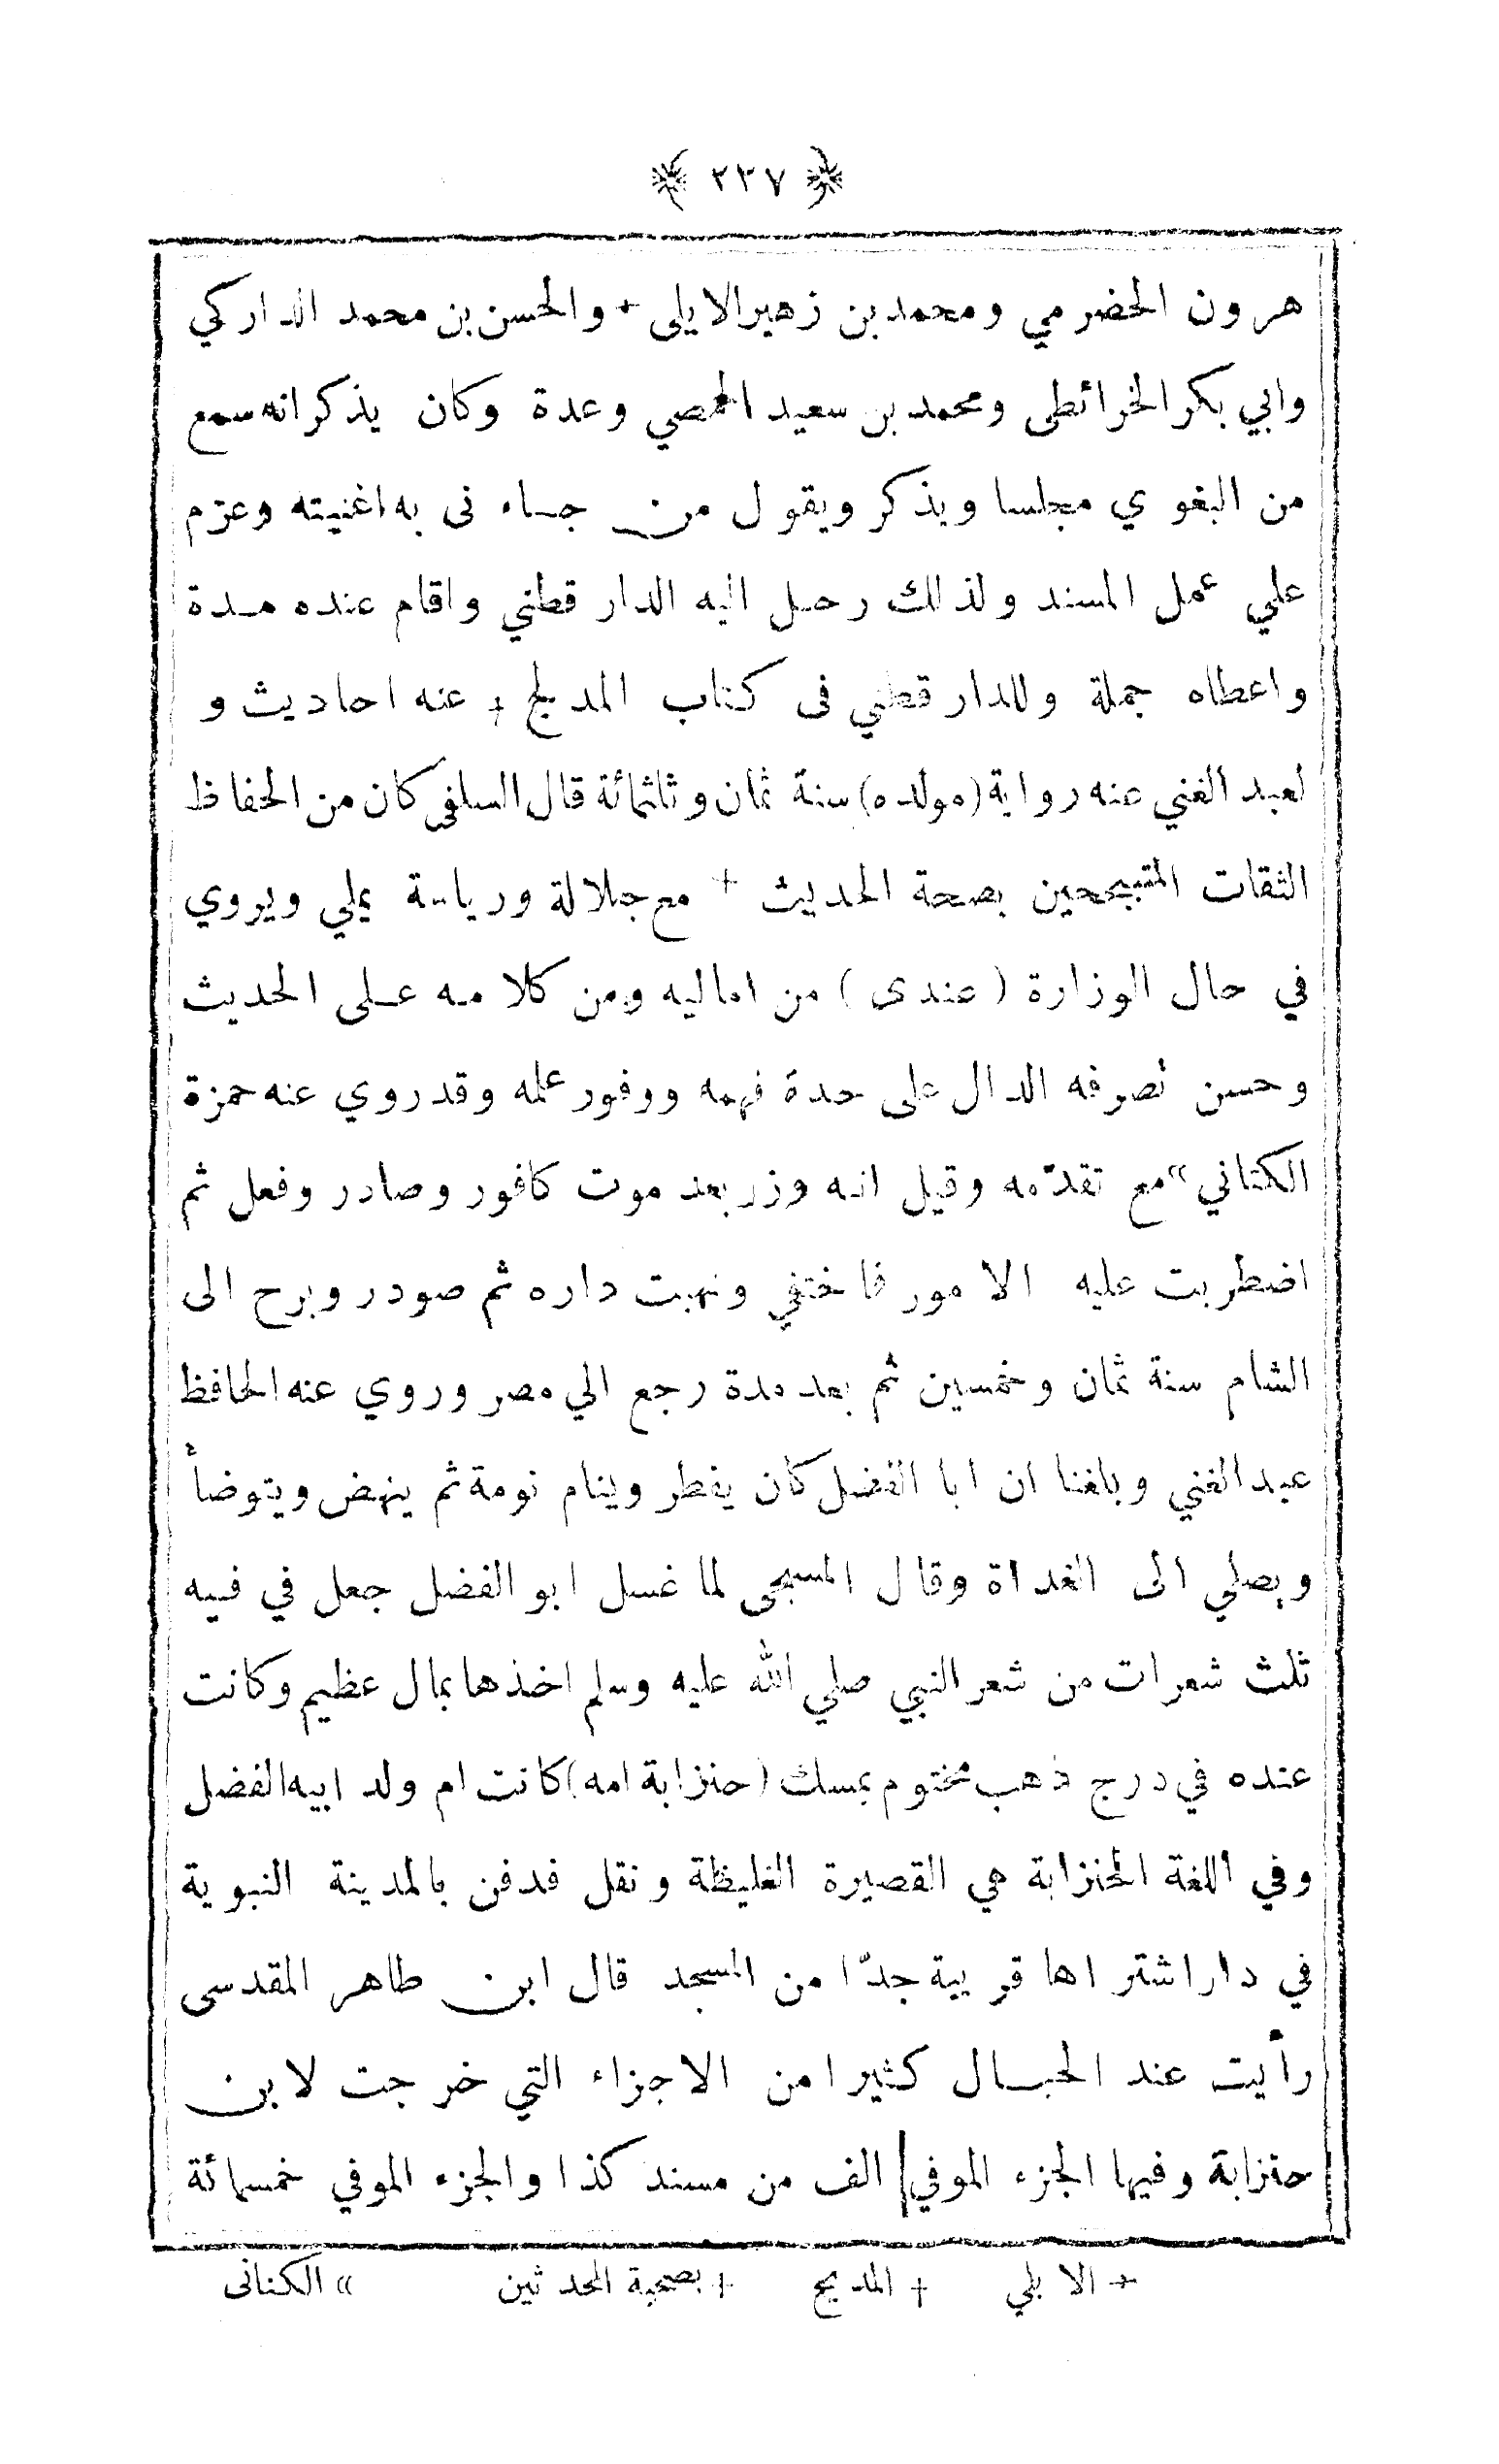 ﴿ ٢٣٧ ﴾
هرون الحضرمي ومحمد بن زهير الايلى + والحسن بن محمد الداركي
وابي بكر الخرائطى ومحمد بن سعيد الحمصي وعدة وكان يذكر انه سمع
من البغوي مجلسا ويذكر ويقول من جاء نى به اغنيته وعزم
علي عمل المسند ولذلك رحل اليه الدار قطني واقام عنده مدة
واعطاه جملة وللدار قطني فى كتاب المدبج + عنه احاديث و
لعبد الغني عنه رواية (مولده) سنة ثمان وثلثمائة قال السلفي كان من الحفاظ
الثقات المتبجحين بصحة الحديث + مع جلالة ورياسة يملي ويروي
في حال الوزارة (عندى) من اماليه ومن كلامه على الحديث
وحسن تصرفه الدال على حدة فهمه ووفور علمه وقد روي عنه حمزة
الكتاني » مع تقدّمه وقيل انه وزر بعد موت كافور وصادر وفعل ثم
اضطربت عليه الامور فاختفي ونهبت داره ثم صودر وبرح الى
الشام سنة ثمان وخمسين ثم بعد مدة رجع الي مصر وروي عنه الحافظ
عبد الغني وبلغنا ان ابا الفضل كان يفطر وينام نومة ثم ينهض ويتوضأ
ويصلي الى الغداة وقال المسبحى لما غسل ابو الفضل جعل في فيه
ثلث شعرات من شعر النبي صلي الله عليه وسلم اخذها بمال عظيم وكانت
عنده في درج ذهب مختوم بمسك (حنزابة امه) كانت ام ولد ابيه الفضل
وفي اللغة الحنزابة هي القصيرة الغليظة ونقل فدفن بالمدينة النبوية
في دار اشتراها قريبة جدّا من المسجد قال ابن طاهر المقدسى
رأيت عند الحبال كثيرا من الاجزاء التي خرجت لابن
حنزابة وفيها الجزء الموفي الف من مسند كذا والجزء الموفي خمسمائة
+ الابلي + المديح + بصحبة المحدثين » الكنانى